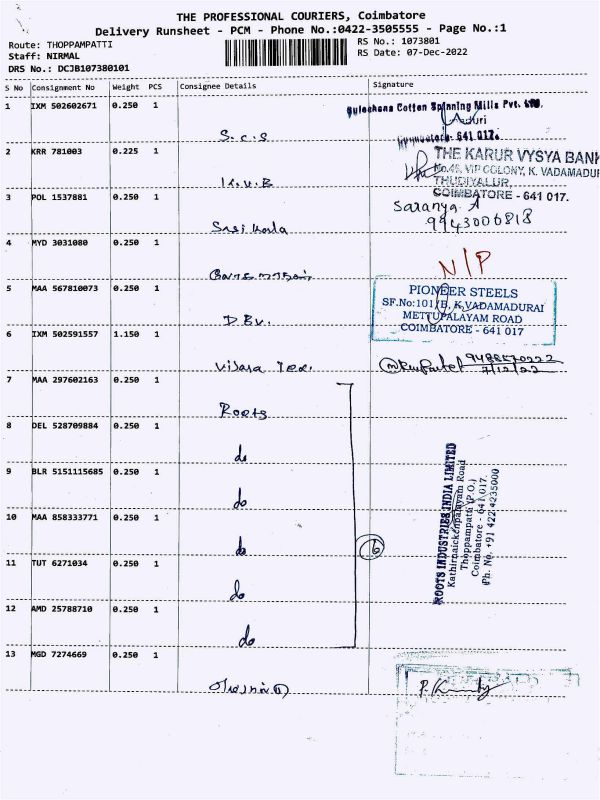 THE PROFESSIONAL COURIERS, Coimbatore
Delivery Runsheet - PCM - Phone No.:0422-3505555 - Page No.:1
Route: THOPPAMPATTI
RS No.: 1073801
Staff: NIRMAL
RS Date: 07-Dec-2022
DRS No.: DCJB107380101
S No Consignment No Weight PCS Consignee Details Signature
1 IXM 502602671 0.250 1
Sulochana Cotton Spinning Mills Pvt. Ltd.
Coimbatore - 641 017.
S.C.S
2 KRR 781003 0.225 1
THE KARUR VYSYA BANK
No.45, VIP COLONY, K. VADAMADURAI
THUDIYALUR,
COIMBATORE - 641 017.
K.V.B
3 POL 1537881 0.250 1
Saranya A
9943006818
Sasikala
4 MYD 3031080 0.250 1
N/P
5 MAA 567810073 0.250 1
PIONEER STEELS
SF.No:101/B, K.VADAMADURAI
METTUPALAYAM ROAD
COIMBATORE - 641 017
DBV.
6 IXM 502591557 1.150 1
9488570222
7/12/22
Vijaya Tex.
7 MAA 297602163 0.250 1
Roots
8 DEL 528709884 0.250 1
do
9 BLR 5151115685 0.250 1
do
10 MAA 858333771 0.250 1
do
6
11 TUT 6271034 0.250 1
do
12 AMD 25788710 0.250 1
do
ROOTS INDUSTRIES INDIA LIMITED
Kathirnaickenpalayam Road
Thoppampatti (P.O.)
Coimbatore - 641 017.
Ph. No. +91 422 4235000
13 MGD 7274669 0.250 1